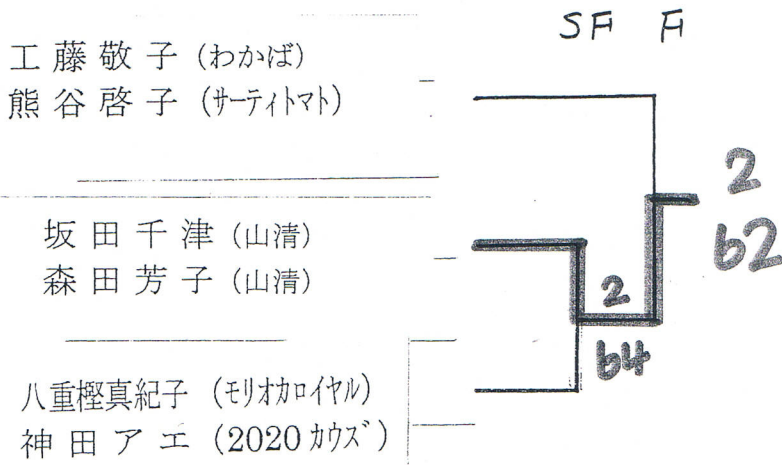 SF F
工藤敬子 (わかば)
熊谷啓子 (サーティトマト)
2
62
坂田千津 (山清)
森田芳子 (山清)
2
64
八重樫真紀子 (モリオカロイヤル)
神田アエ (2020カウズ)